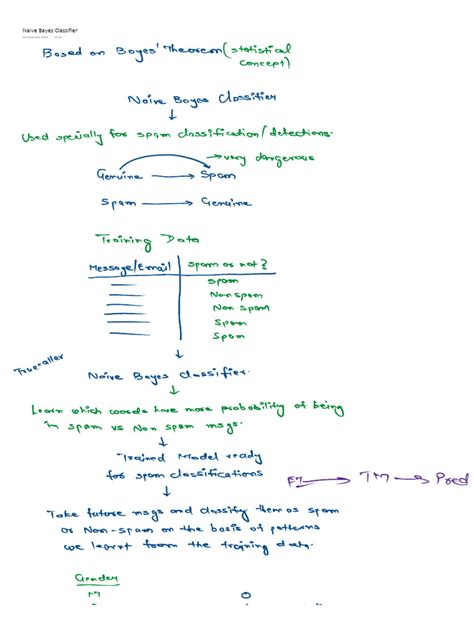 Naive Bayes Classifier
Based on Bayes' Theorem (statistical
concept)
Naive Bayes Classifier
Used specially for spam classification/detections.
→ very dangerous
Genuine → Spam
Spam → Genuine
Training Data
Message/Email spam or not?
Spam
Non spam
Non spam
Spam
Spam
Truecaller
Naive Bayes classifier.
Learn which words have more probability of being
in spam vs Non spam msgs.
Trained Model ready
for spam classifications
→ TM → Pred
Take future msgs and classify them as spam
or Non-spam on the basis of patterns
we learnt from the training data.
Gender
M